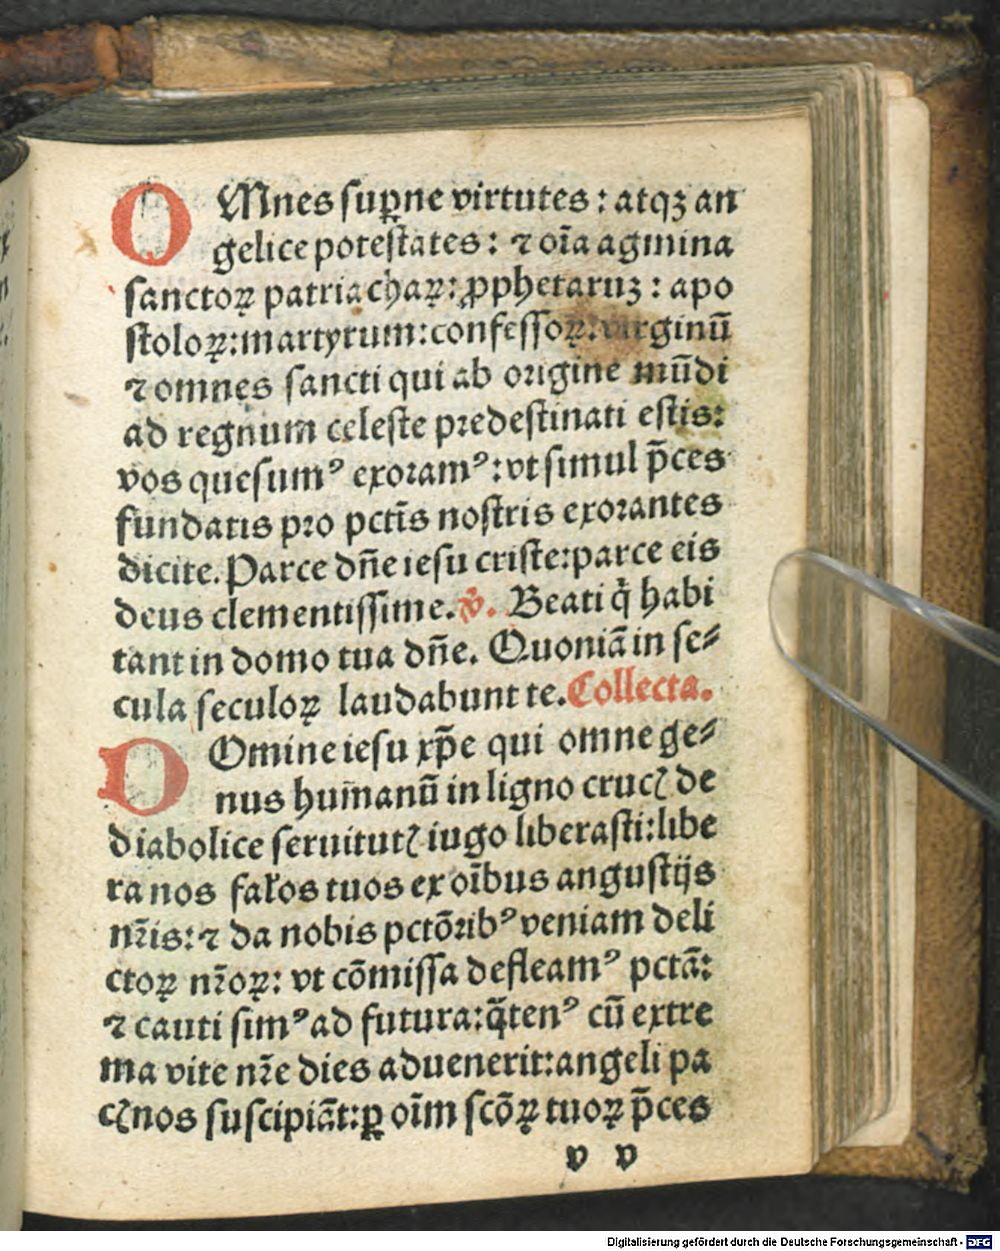 OMnes suꝑne virtutes : atqꝫ an
gelice potestates : ⁊ oı̄a agmina
sanctoꝝ patriachaꝝ: ꝓphetaruꝫ : apo
stoloꝝ:martyrum:confessoꝝ:virginū
⁊ omnes sancti qui ab origine mūdi
ad regnum celeste predestinati estis:
vos quesumꝰ exoramꝰ:vt simul p̄ces
fundatis pro pct̄is nostris exorantes
dicite. Parce dn̄e iesu criste:parce eis
deus clementissime. v̄. Beati q̄ habi
tant in domo tua dn̄e. Quoniā in se⸗
cula seculoꝝ laudabunt te. Collecta.
DOmine iesu xp̄e qui omne ge⸗
nus hum̄anū in ligno crucꝭ de
diabolice seruitutꝭ iugo liberasti:libe
ra nos fał̄os tuos ex oı̄bus angustijs
nr̄is: ⁊ da nobis pctōribꝰ veniam deli
ctoꝝ nr̄oꝝ: vt cōmissa defleamꝰ pctā:
⁊ cauti simꝰ ad futura:q̄tenꝰ cū extre
ma vite nr̄e dies aduenerit:angeli pa
cꝭ nos suscipiāt:ꝑ oı̄m scōꝝ tuoꝝ p̄ces
v v
Digitalisierung gefördert durch die Deutsche Forschungsgemeinschaft - DFG